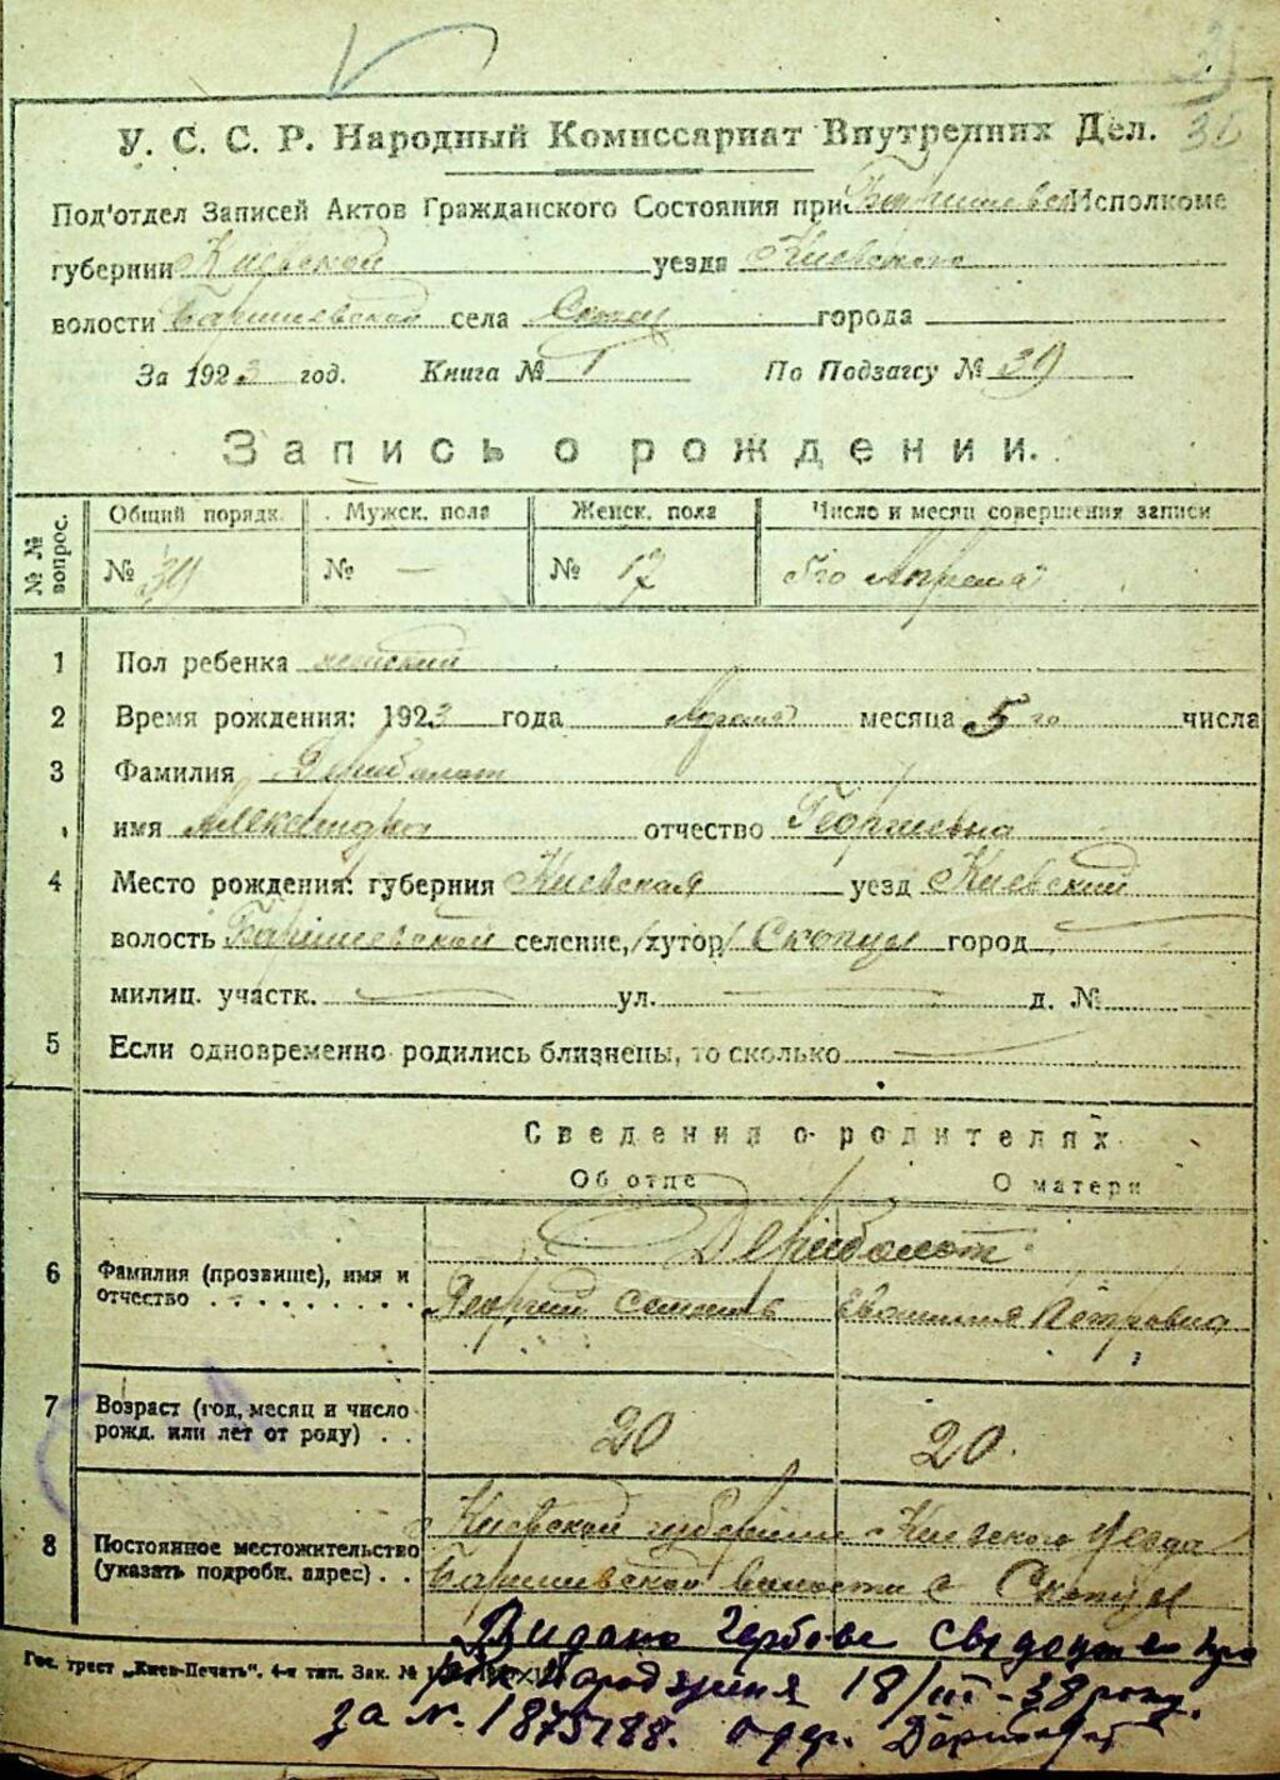 У. С. С. Р. Народный Комиссариат Внутренних Дел.
Под'отдел Записей Актов Гражданского Состояния при Исполкоме
губернии Киевской уезда Киевского
волости Баришевской села города
За 1923 год. Книга № 1 По Подзагсу № 39
Запись о рождении.
№ № вопрос. Общий порядк. Мужск. пола Женск. пола Число и месяц совершения записи
№ 39 № — № 17 5го Апреля
1 Пол ребенка женский
2 Время рождения: 1923 года месяца 5го числа
3 Фамилия Дериболот
имя Александра отчество Георгиевна
4 Место рождения: губерния Киевская уезд Киевский
волость Баришевской селение, /хутор/ Скопцы город
милиц. участк. ул. д. №
5 Если одновременно родились близнецы, то сколько
Сведения о родителях
Об отце О матери
Дериболот
6 Фамилия (прозвище), имя и
отчество Георгий Петровна
7 Возраст (год, месяц и число
рожд. или лет от роду) 20 20.
8 Постоянное местожительство
(указать подробн. адрес)
Киевской губернии Киевского уезда
Баришевской волости с Скопцы
Гос. трест „Киев-Печать“. 4-я тип. Зак. №
Видано Гербове про
народження 18/III-38 року.
за N. 1875188.